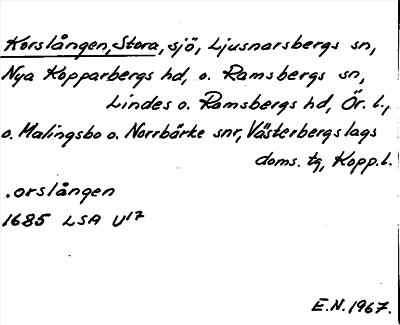 Korslången, Stora, sjö, Ljusnarsbergs sn,
Nya Kopparbergs hd, o. Ramsbergs sn,
Lindes o. Ramsbergs hd, Ör. l.,
o. Malingsbo o. Norrbärke snr, Västerbergslags
doms. tg, Kopp. l.
.orslången
1685 LSA U17
E.N. 1967.